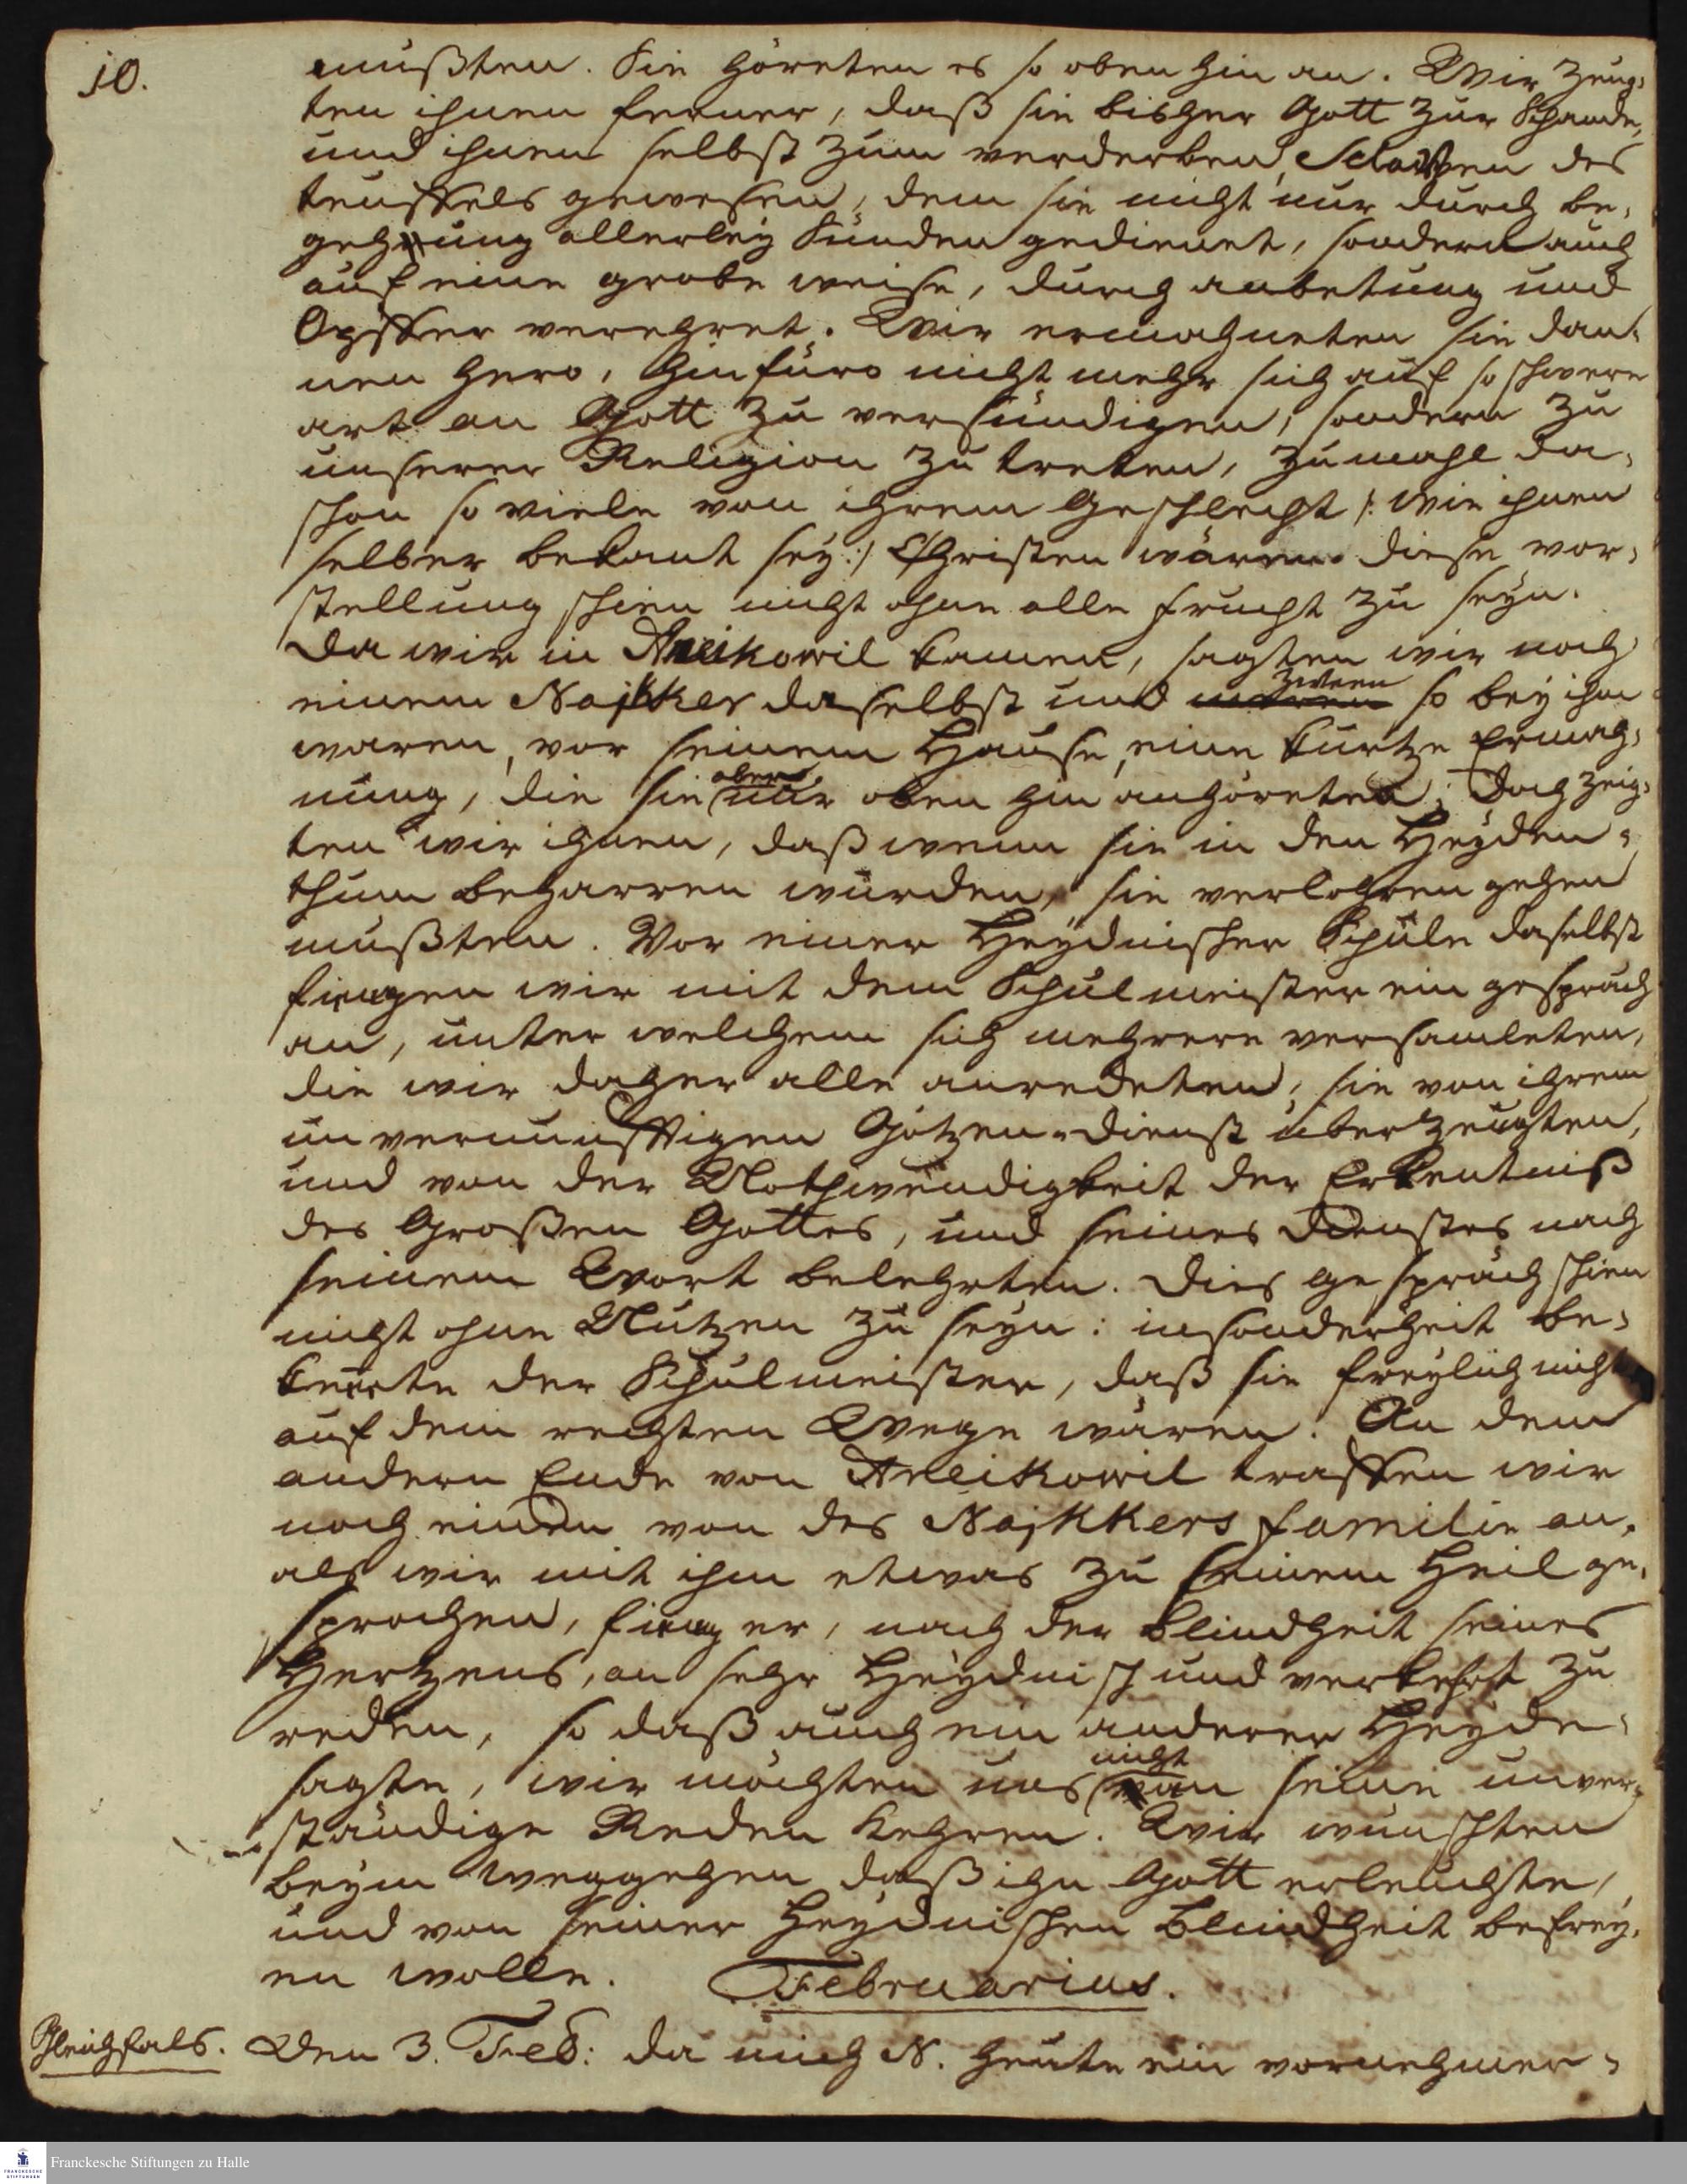 10.
mußten. Sie höreten es so oben hin an. Wir zeug-
ten ihnen ferner, daß sie bisher Gott zur Schande,
und ihnen selbst zum verderben, Sclaven des
teuffels gewesen, dem sie nicht nur durch be-
gehung allerley Sünden gedienet, sondern auch
auf eine grobe weise, durch anbetung und
Opffer verehret. Wir ermahneten sie dan-
nen hero, hinfüro nicht mehr sich auf so schwere
art an Gott zu versündigen, sondern zu
unserer Religion zu treten, zumahl da
schon so viele von ihrem Geschlecht /: wie ihnen
selber bekant sey :/ Christen wären. Diese vor-
stellung schien nicht ohne alle frucht zu seyn.
Da wir in Aneikowil kamen, sagten wir noch
einem Najkker daselbst und zween so bey ihm
waren, vor seinem Hause, eine kurtze Ermah-
nung, die sie aber nur oben hin anhöreten; doch zeig-
ten wir ihnen, daß wenn sie in den Heyden-
thum beharren würden, sie verlohren gehen
mußten. Vor einer Heydnischen Schule daselbst
fingen wir mit dem Schulmeister ein gespräch
an, unter welchem sich mehrere versamleten,
die wir daher alle anredeten, sie von ihrem
unvernünfftigen Götzen-dienst überzeugten,
und von der Nothwendigkeit der Erkentniß
des Großen Gottes, und seines dienstes nach
seinem Wort belehrten. Dies gespräch schien
nicht ohne Nutzen zu seyn: insonderheit be-
kente der Schulmeister, daß sie freylich nicht
auf dem rechten Wege wären. An dem
andern Ende von Aneikowil traffen wir
noch einen von des Najkkers familie an.
als wir mit ihm etwas zu seinem Heil ge-
sprochen, fing er, nach der blindheit seines
Hertzens, an sehr Heydnisch und verkehrt zu
reden, so daß auch ein anderer Heyde
sagte, wir möchten uns nicht an seine unver-
ständige Reden kehren. Wir wünschten
beym weggehen daß ihn Gott erleuchten,
und von seiner Heydnischen blindheit befrey-
en wolle. Februarius.
Gleichfals. Den 3. Feb: da mich N. heute ein vornehmer
Franckesche Stiftungen zu Halle